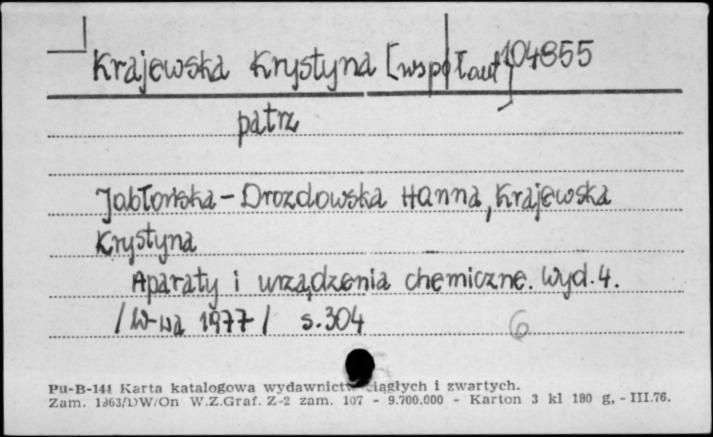 Krajewska Krystyna [współaut] 104855
patrz
Jabłońska-Drozdowska Hanna, Krajewska
Krystyna
Aparaty i urządzenia chemiczne. Wyd. 4.
/W-wa 1977/ s. 304 6
Pu-B-141 Karta katalogowa wydawnictw ciągłych i zwartych.
Zam. 1363/DW/On W.Z.Graf. Z-2 zam. 107 - 9.700.000 - Karton 3 kl 180 g. - III.76.